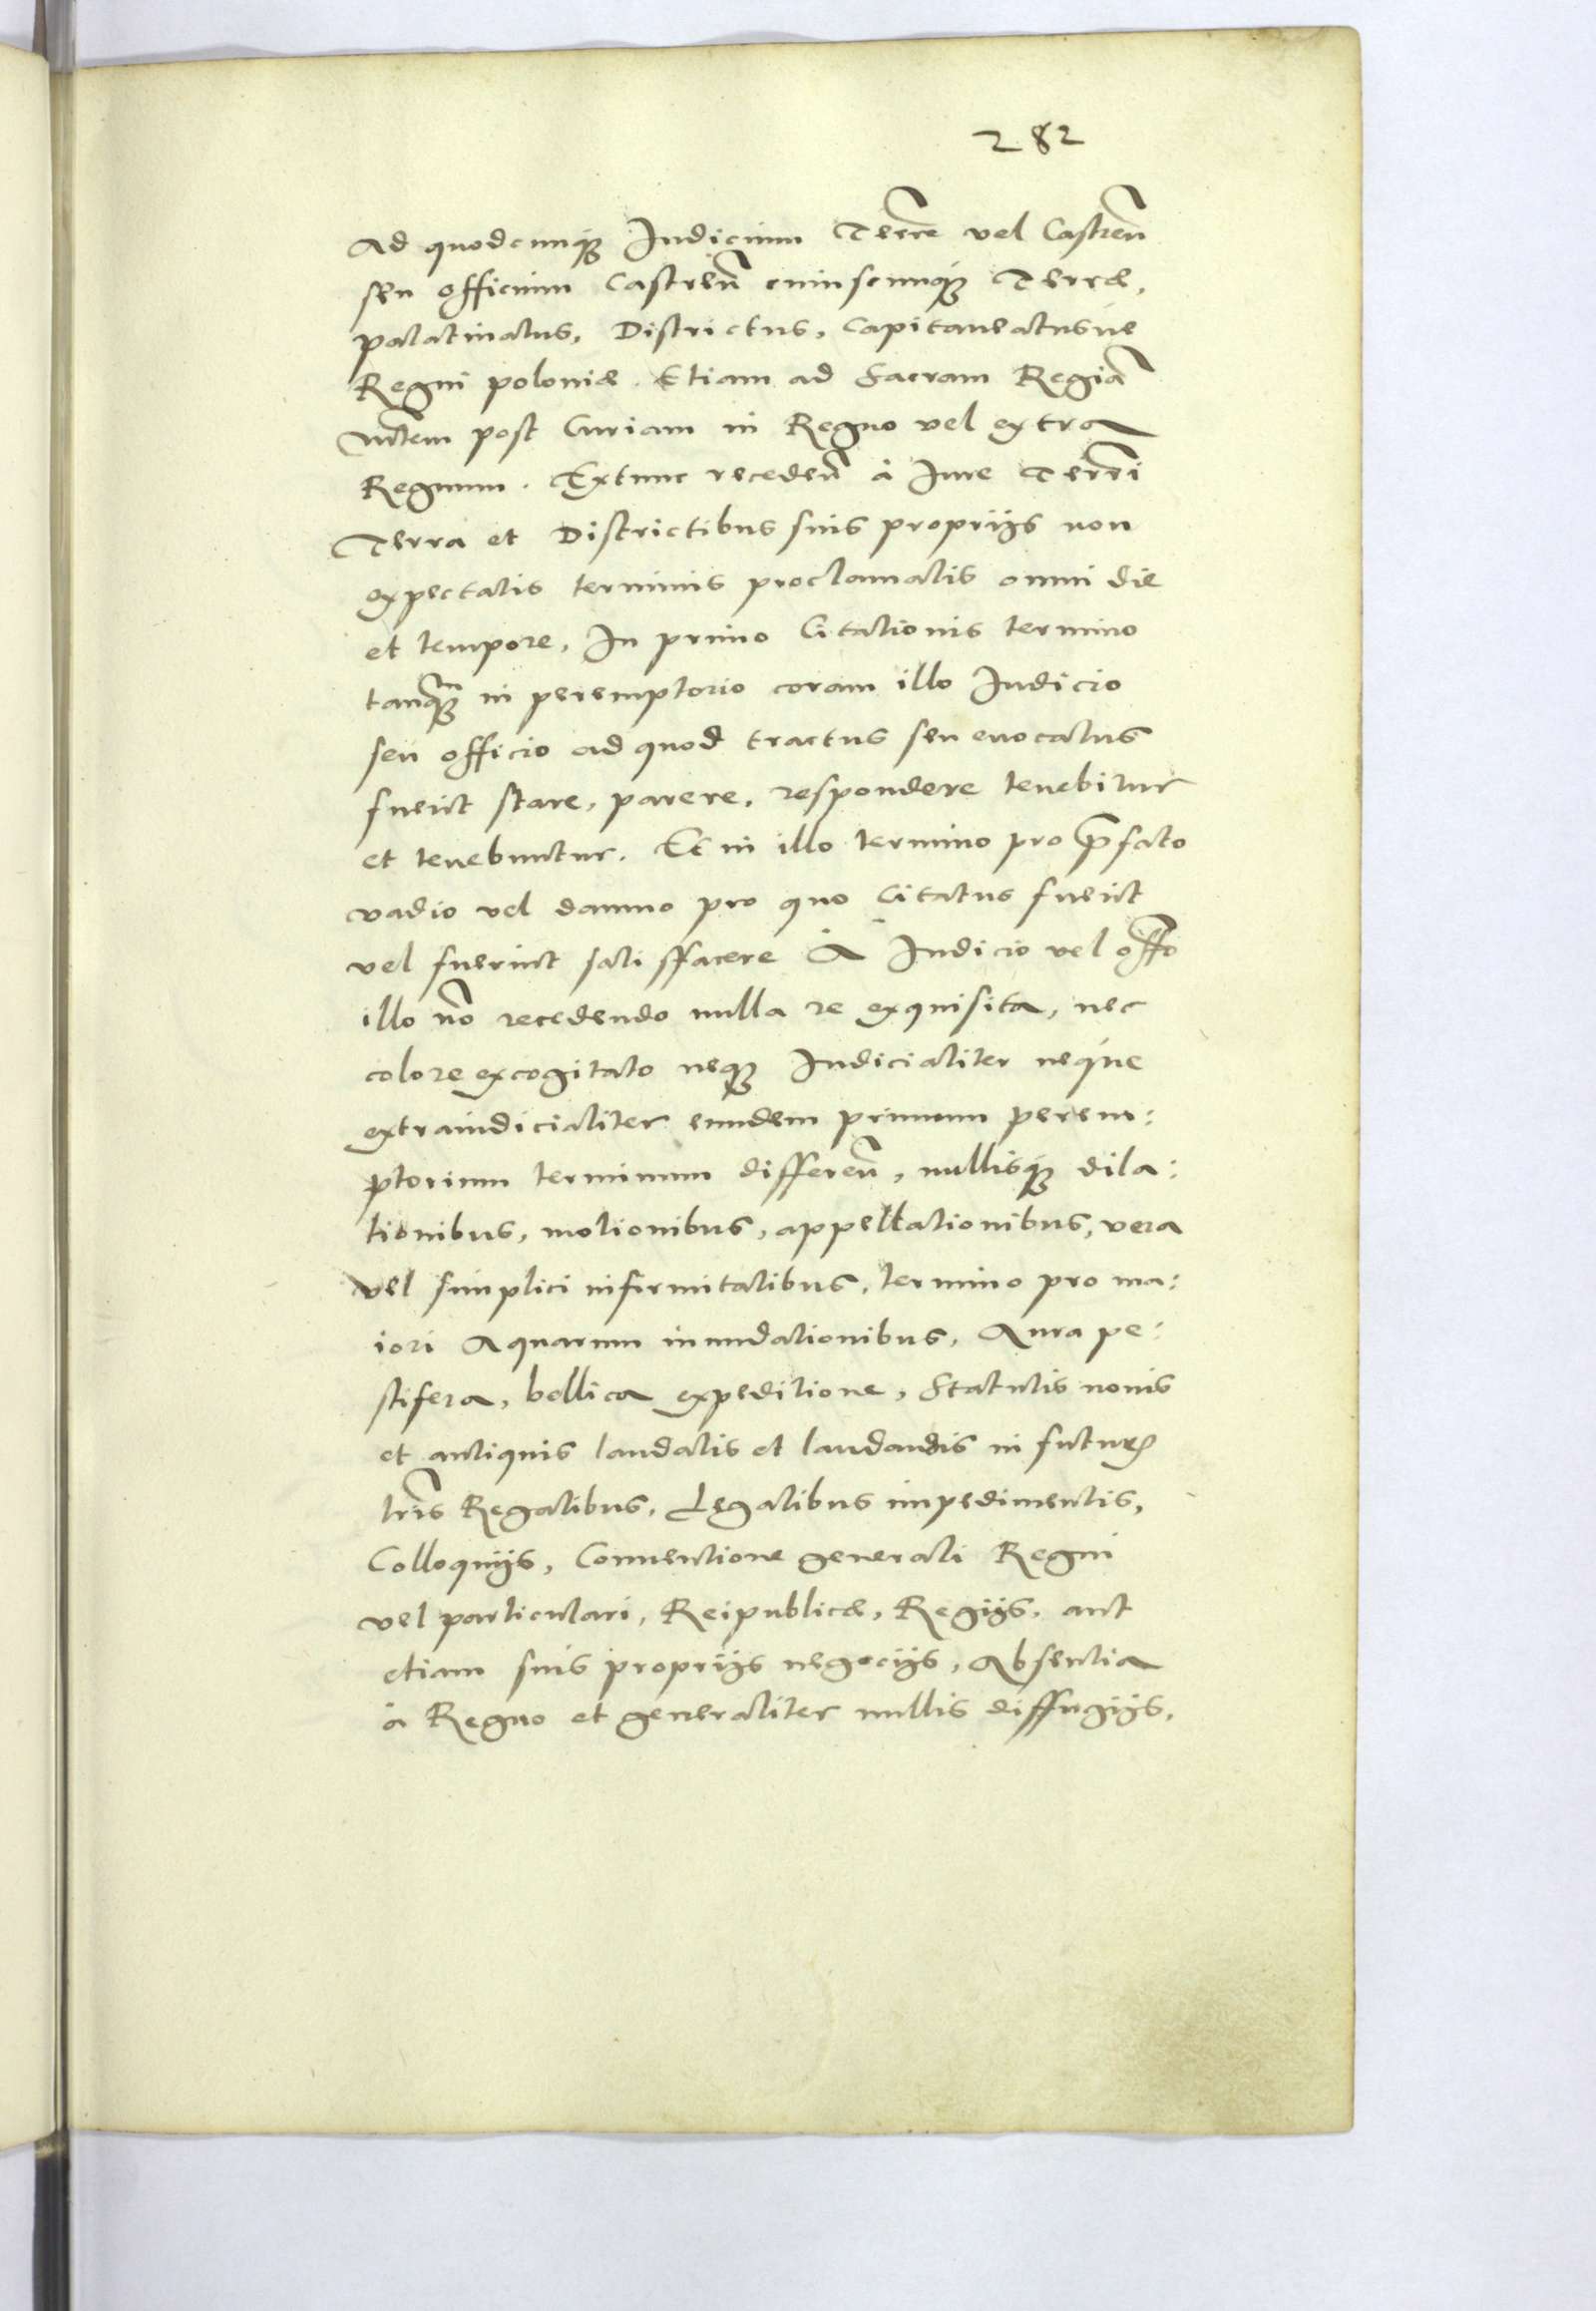 282
Ad quodcunq3 Iudicium Terre vel Castren
seu officium Castren cuiuscunq3 Terræ,
palatinatus, Districtus, Capitaneatusúe
Regni poloniæ. Etiam ad Sacram Regiã
Mtem post Curiam in Regno vel extra
Regnum. Extunc receden à Iure Terrei
Terra et Districtibus suis proprijs non
expectatis terminis proclamatis omni die
et tempore, In primo Citationis termino
tanq3 in peremptorio coram illo Iudicio
seu officio ad quod tractus seu euocatus
fuerit stare, parere, respondere tenebitur
et tenebuntur. Et in illo termino pro p̃fato
vadio vel damno pro quo Citatus fuerit
vel fuerint satisffacere À Iudicio vel offo
illo nõ recedendo nulla re exquisita, nec
colore excogitato neq3 Iudicialiter neque
extraiudicialiter eundem primum perem:
ptorium terminum differen, nullisq3 dila:
tionibus, motionibus, appellationibus, vera
vel simplici infirmitatibus, termino pro ma:
iori Aquarum inundationibus, Aura pe:
stifera, bellica expeditione, Statutis nouis
et antiquis laudatis et laudandis in futurũ
lris Regalibus, Legalibus impedimentis,
Colloquijs, Conuentione generali Regni
vel particulari, Reipublicæ, Regijs, aut
etiam suis proprijs negocijs, Absentia
à Regno et generaliter nullis diffugijs,